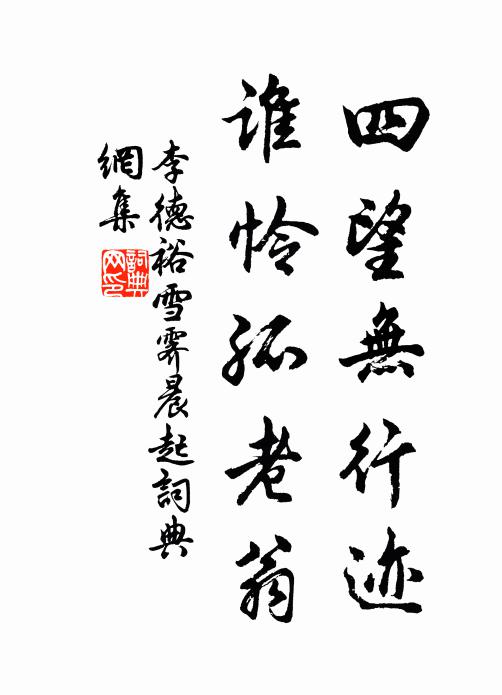 四望無行迹
谁怜孤老翁
李德裕雪霁晨起詞典
網集
詞典
网印